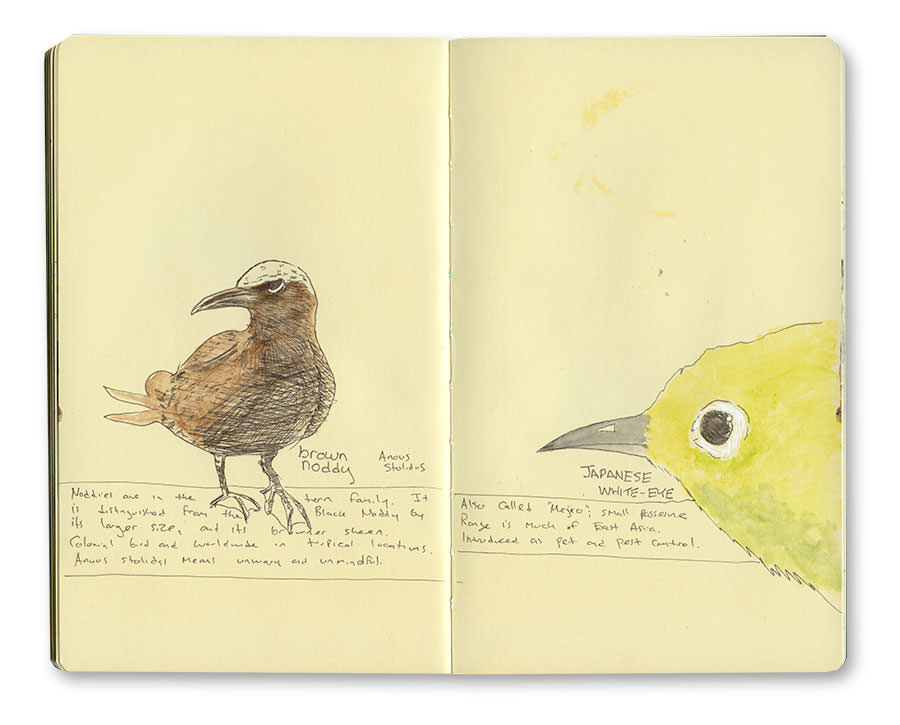 brown
noddy
Anous
Stolidus
Noddies are in the tern family. It
is distinguished from the Black Noddy by
its larger size, and its browner sheen.
Colonial bird and worldwide in tropical locations.
Anous stolidus means unwary and unmindful.
JAPANESE
WHITE-EYE
Also called "Mejiro"; small passerine
Range is much of East Asia.
Introduced as pet and pest control.